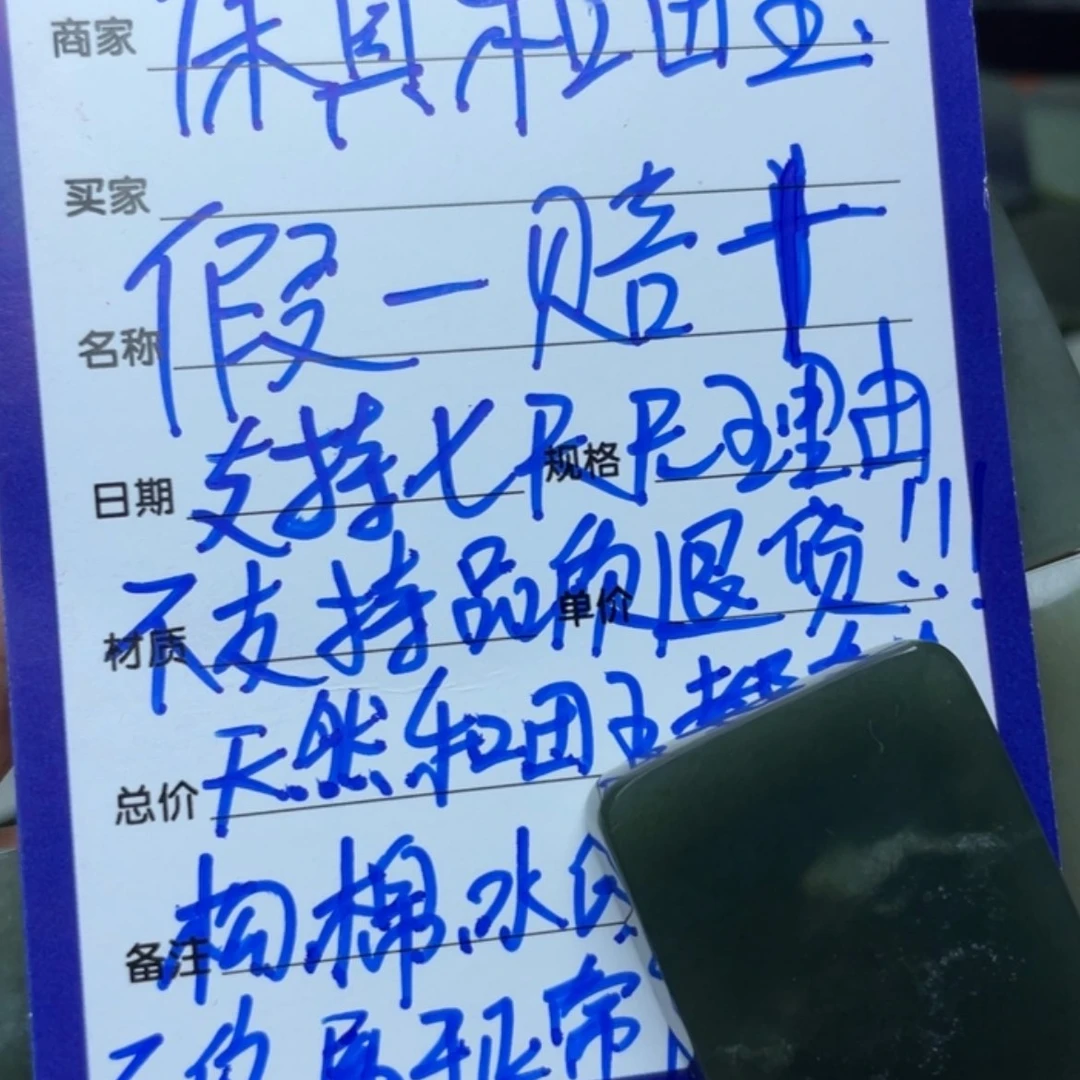 商家 保真和田玉
买家
假一赔十
名称
支持七天无理由
日期 规格
不支持品质退货!!!
材质 单价
天然和田玉都有
总价
构.棉.水
备注